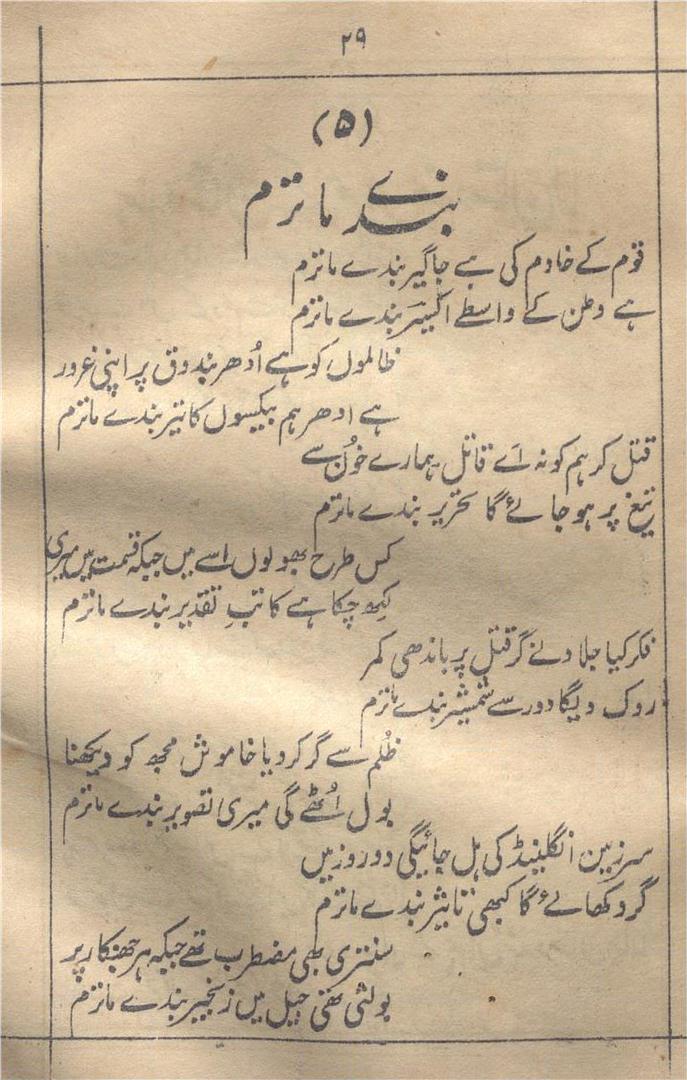 ۲۹
(۵)
بندے ماترم
قوم کے خادم کی ہے جاگیر بندے ماترم
ہے وطن کے واسطے اکسیر بندے ماترم
ظالموں کو ہے اُدھر بندوق پر اپنی غرور
ہے ادھر ہم بیکسوں کا تیر بندے ماترم
قتل کر ہم کو نہ اَے قاتل ہمارے خُون سے
تیغ پر ہو جائے گا تحریر بندے ماترم
کس طرح بھولوں اسے میں جبکہ قسمت میں مری
لکھ چکا ہے کاتبِ تقدیر بندے ماترم
فکر کیا جلاد نے گر قتل پر باندھی کمر
روک دیگا دور سے شمشیر بندے ماترم
ظُلم سے گر کر دیا خاموش مجھ کو دیکھنا
بول اُٹھے گی میری تصویر بندے ماترم
سرزمین انگلینڈ کی ہل جائیگی دو روز میں
گر دکھائے گا کبھی تاثیر بندے ماترم
سنتری بھی مضطرب تھے جبکہ ہر جھنکار پر
بولتی تھی جیل میں زنجیر بندے ماترم